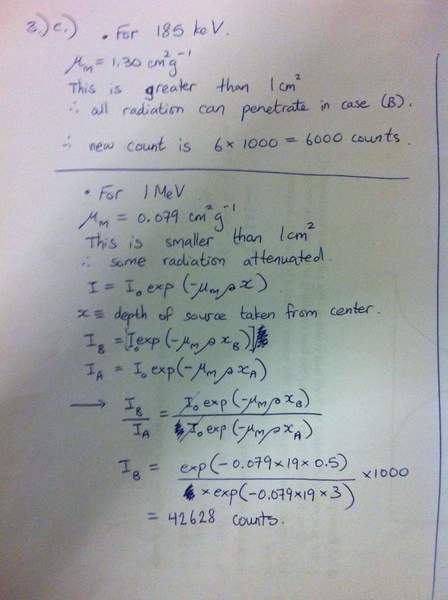 3.) c.) • For 185 keV.
μm = 1.30 cm² g⁻¹
This is greater than 1cm²
∴ all radiation can penetrate in case (B).
∴ new count is 6 × 1000 = 6000 counts.
• For 1 MeV
μm = 0.079 cm² g⁻¹
This is smaller than 1cm²
∴ some radiation attenuated.
I = I₀ exp (-μm ρ x)
x ≡ depth of source taken from center.
I_B = [I₀ exp (-μm ρ x_B)]
I_A = I₀ exp(-μm ρ x_A)
→ I_B / I_A = I₀ exp(-μm ρ x_B) / I₀ exp(-μm ρ x_A)
I_B = exp(-0.079×19×0.5) / × exp(-0.079×19×3) ×1000
= 42628 counts.